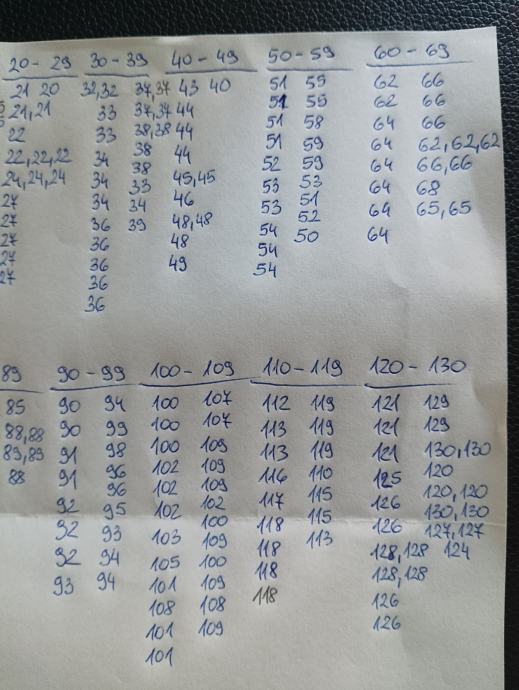 20 - 29 30 - 39 40 - 49 50 - 59 60 - 69
21 20 32,32 37,37 43 40 51 55 62 66
21,21 33 37,37 44 51 55 62 66
22 33 38,38 44 51 58 64 66
22,22,22 34 38 44 51 59 64 62,62,62
24,24,24 34 38 45,45 52 59 64 66,66
27 34 33 46 53 53 64 68
27 36 34 48,48 53 51 64 65,65
27 36 39 48 54 52 64
27 36 49 54 50
27 36 54
36
89 90 - 99 100 - 109 110 - 119 120 - 130
85 90 94 100 107 112 119 121 129
88,88 90 99 100 107 113 119 121 129
89,89 91 98 100 109 113 119 121 130,130
88 91 96 102 109 116 110 125 120
96 102 109 117 115 126 120,120
92 95 102 102 118 115 126 130,130
92 93 103 100 118 113 128,128 127,127
92 94 105 109 118 128,128 124
93 94 101 100 118 126
108 109 126
101 108
101 109